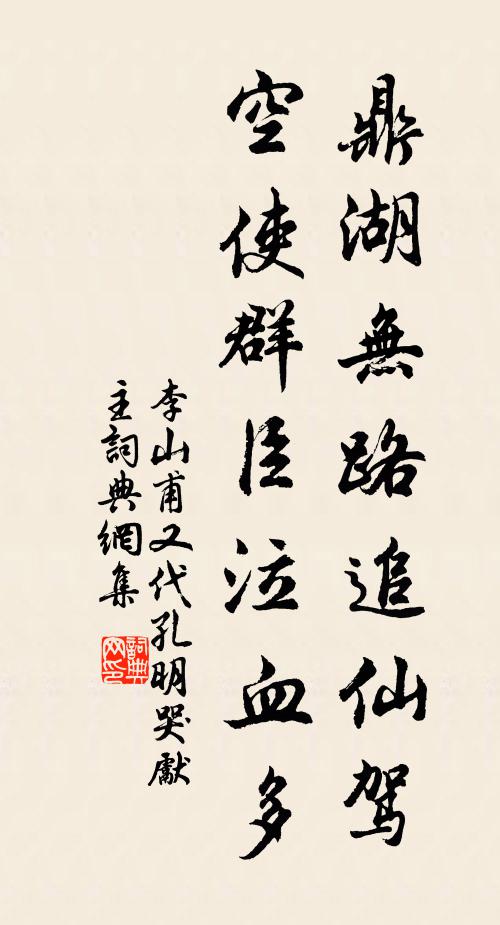 鼎湖無路追仙駕
空使群臣泣血多
李山甫又代孔明哭獻
主詞典網集
詞典網印